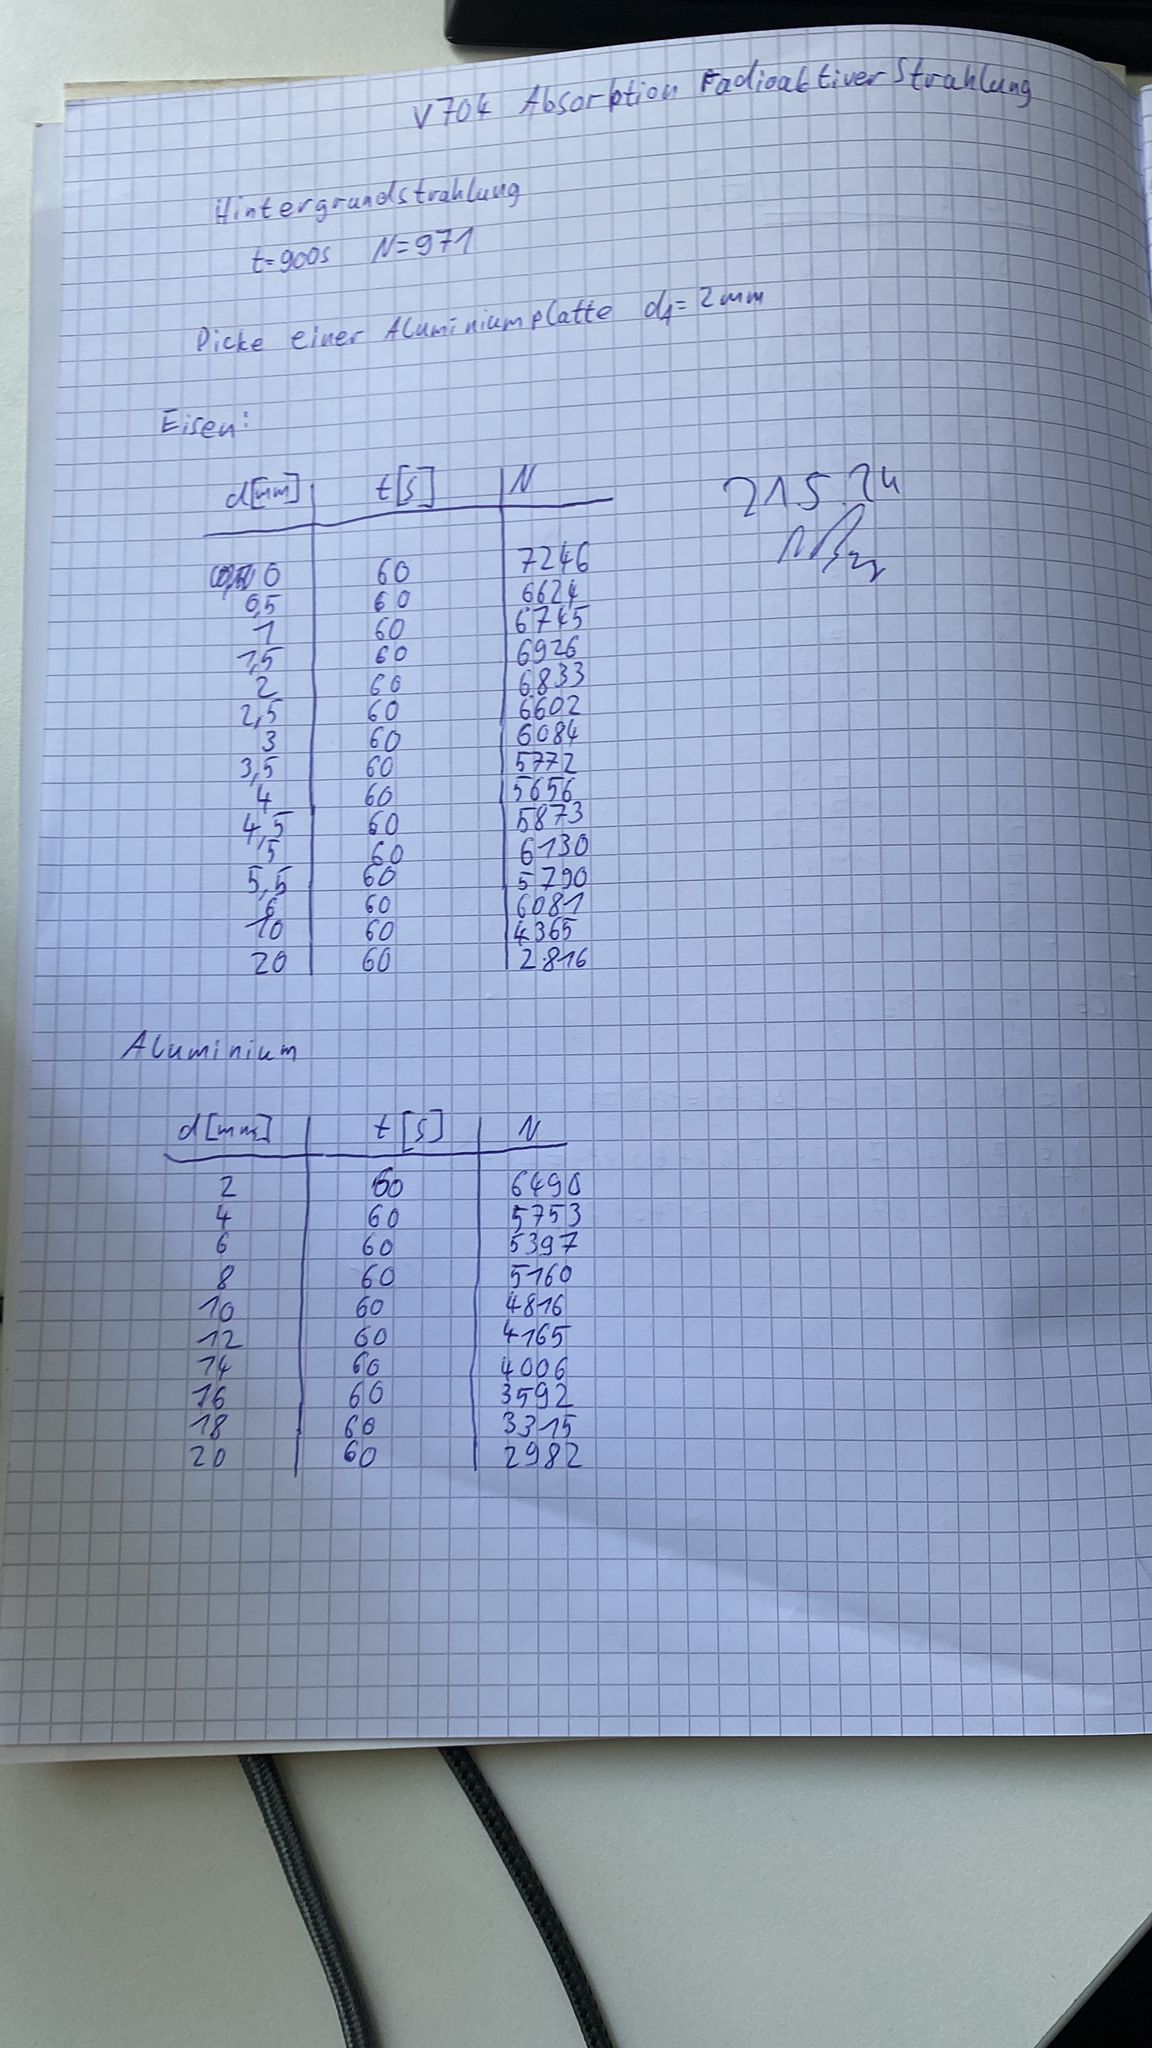 V704 Absorption Radioaktiver Strahlung
Hintergrundstrahlung
t=900s N=971
Dicke einer Aluminiumplatte d₁=2mm
Eisen:
d[mm] t[s] N
0 60 7246
0,5 60 6624
1 60 6745
1,5 60 6926
2 60 6833
2,5 60 6602
3 60 6084
3,5 60 5772
4 60 5656
4,5 60 5873
5 60 6130
5,5 60 5790
6 60 6081
10 60 4365
20 60 2816
21.5.24
Aluminium
d[mm] t[s] N
2 60 6490
4 60 5753
6 60 5397
8 60 5160
10 60 4816
12 60 4165
14 60 4006
16 60 3592
18 60 3315
20 60 2982